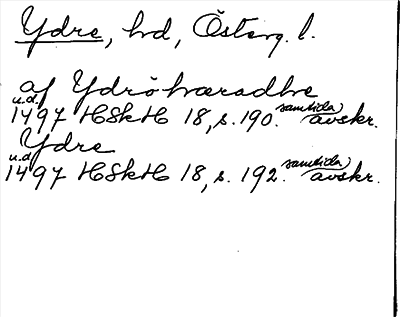 Ydre, hd, Österg. l.
af Ydröhæradhe
u.d. 1497 HSkH 18, s. 190. samtida avskr.
Ydre
u.d. 1497 HSkH 18, s. 192. samtida avskr.